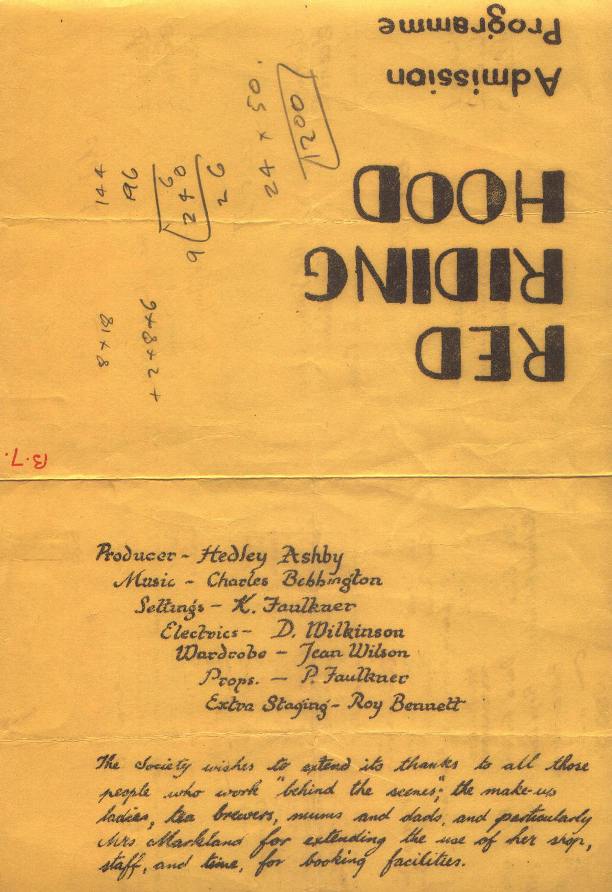 RED
RIDING
HOOD
Admission
Programme
B.7.
24 x 50.
1200
26
9 240
6
144
8 x 18
Producer - Hedley Ashby
Music - Charles Bebbington
Settings - K. Faulkner
Electrics - D. Wilkinson
Wardrobe - Jean Wilson
Props. - P. Faulkner
Extra Staging - Roy Bennett
The Society wishes to extend its thanks to all those
people who work "behind the scenes"; the make-up
ladies, tea brewers, mums and dads, and particularly
Mrs Markland for extending the use of her shop,
staff, and time, for booking facilities.